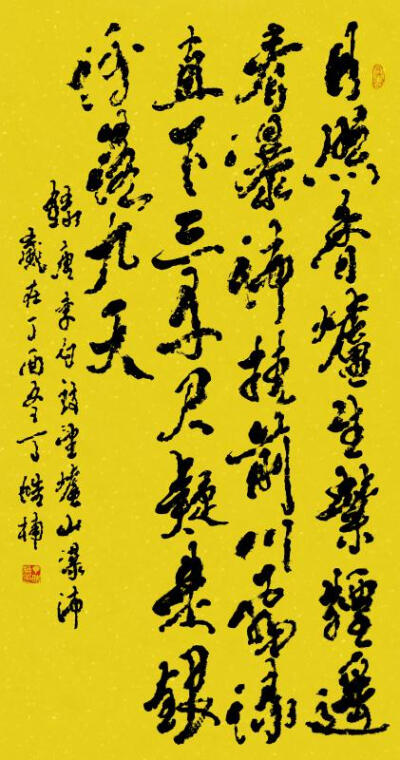 日照香爐生紫煙遥
看瀑布掛前川飛流
直下三千尺疑是銀
河落九天
録唐李白詩望爐山瀑布
歲在丁酉